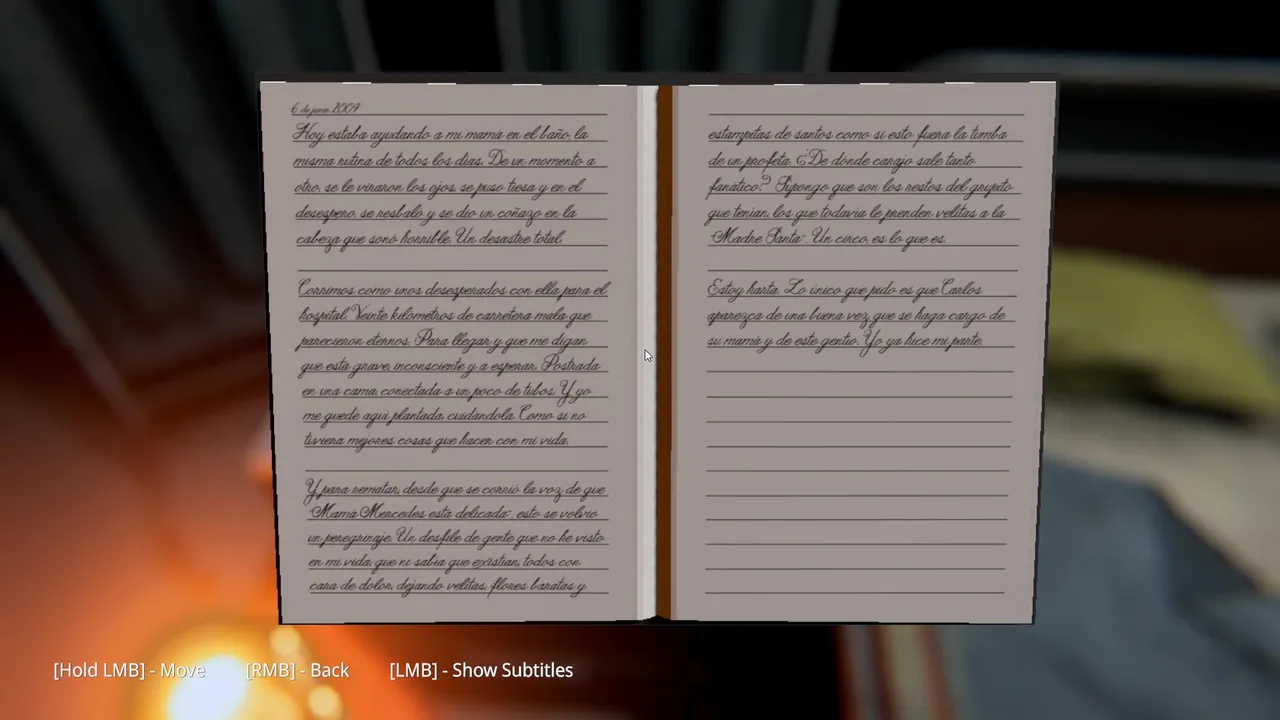 6 de junio 2009
Hoy estaba ayudando a mi mamá en el baño, la
misma rutina de todos los días. De un momento a
otro, se le viraron los ojos, se puso tiesa y en el
desespero, se resbaló y se dio un coñazo en la
cabeza que sonó horrible. Un desastre total.
Corrimos como unos desesperados con ella para el
hospital. Veinte kilómetros de carretera mala que
parecieron eternos. Para llegar y que me digan
que está grave, inconsciente y a esperar. Postrada
en una cama, conectada a un poco de tubos. Y yo
me quedé aquí plantada, cuidándola. Como si no
tuviera mejores cosas que hacer con mi vida.
Y para rematar, desde que se corrió la voz de que
"Mamá Mercedes está delicada", esto se volvió
un peregrinaje. Un desfile de gente que no he visto
en mi vida, que ni sabía que existían, todos con
cara de dolor, dejando velitas, flores baratas y
estampitas de santos como si esto fuera la tumba
de un profeta. ¿De dónde carajo sale tanto
fanático? Supongo que son los restos del grupito
que tenían, los que todavía le prenden velitas a la
"Madre Santa". Un circo, es lo que es.
Estoy harta. Lo único que pido es que Carlos
aparezca de una buena vez, que se haga cargo de
su mamá y de este gentío. Yo ya hice mi parte.
[Hold LMB] - Move [RMB] - Back [LMB] - Show Subtitles